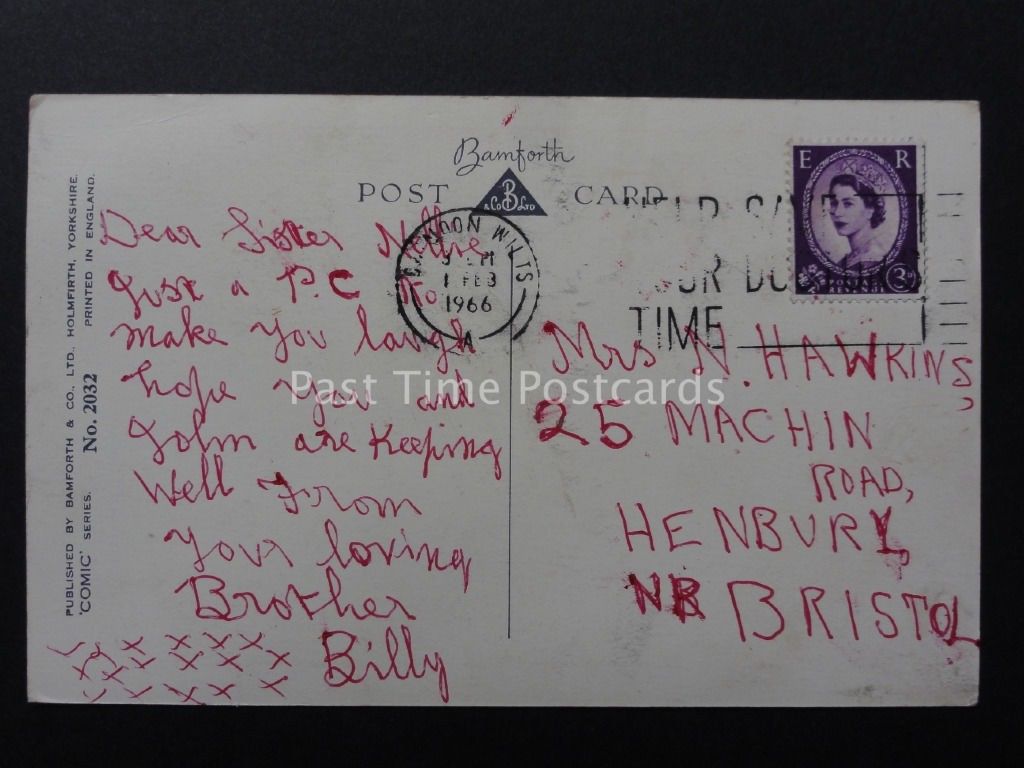 Bamforth
POST CARD
B
& Co Ltd
E R
3D
WILTS
1 FEB
1966
A
TIME
PUBLISHED BY BAMFORTH & CO., LTD., HOLMFIRTH, YORKSHIRE.
'COMIC' SERIES. No. 2032 PRINTED IN ENGLAND.
Dear Sister Nellie
Just a P.C to
make you laugh
hope you and
John are Keeping
Well From
Your loving
Brother
Billy
x x x x x
x x x x x
x x x x x
Mrs N. HAWKINS,
25 MACHIN
ROAD,
HENBURY,
NR BRISTOL
Past Time Postcards